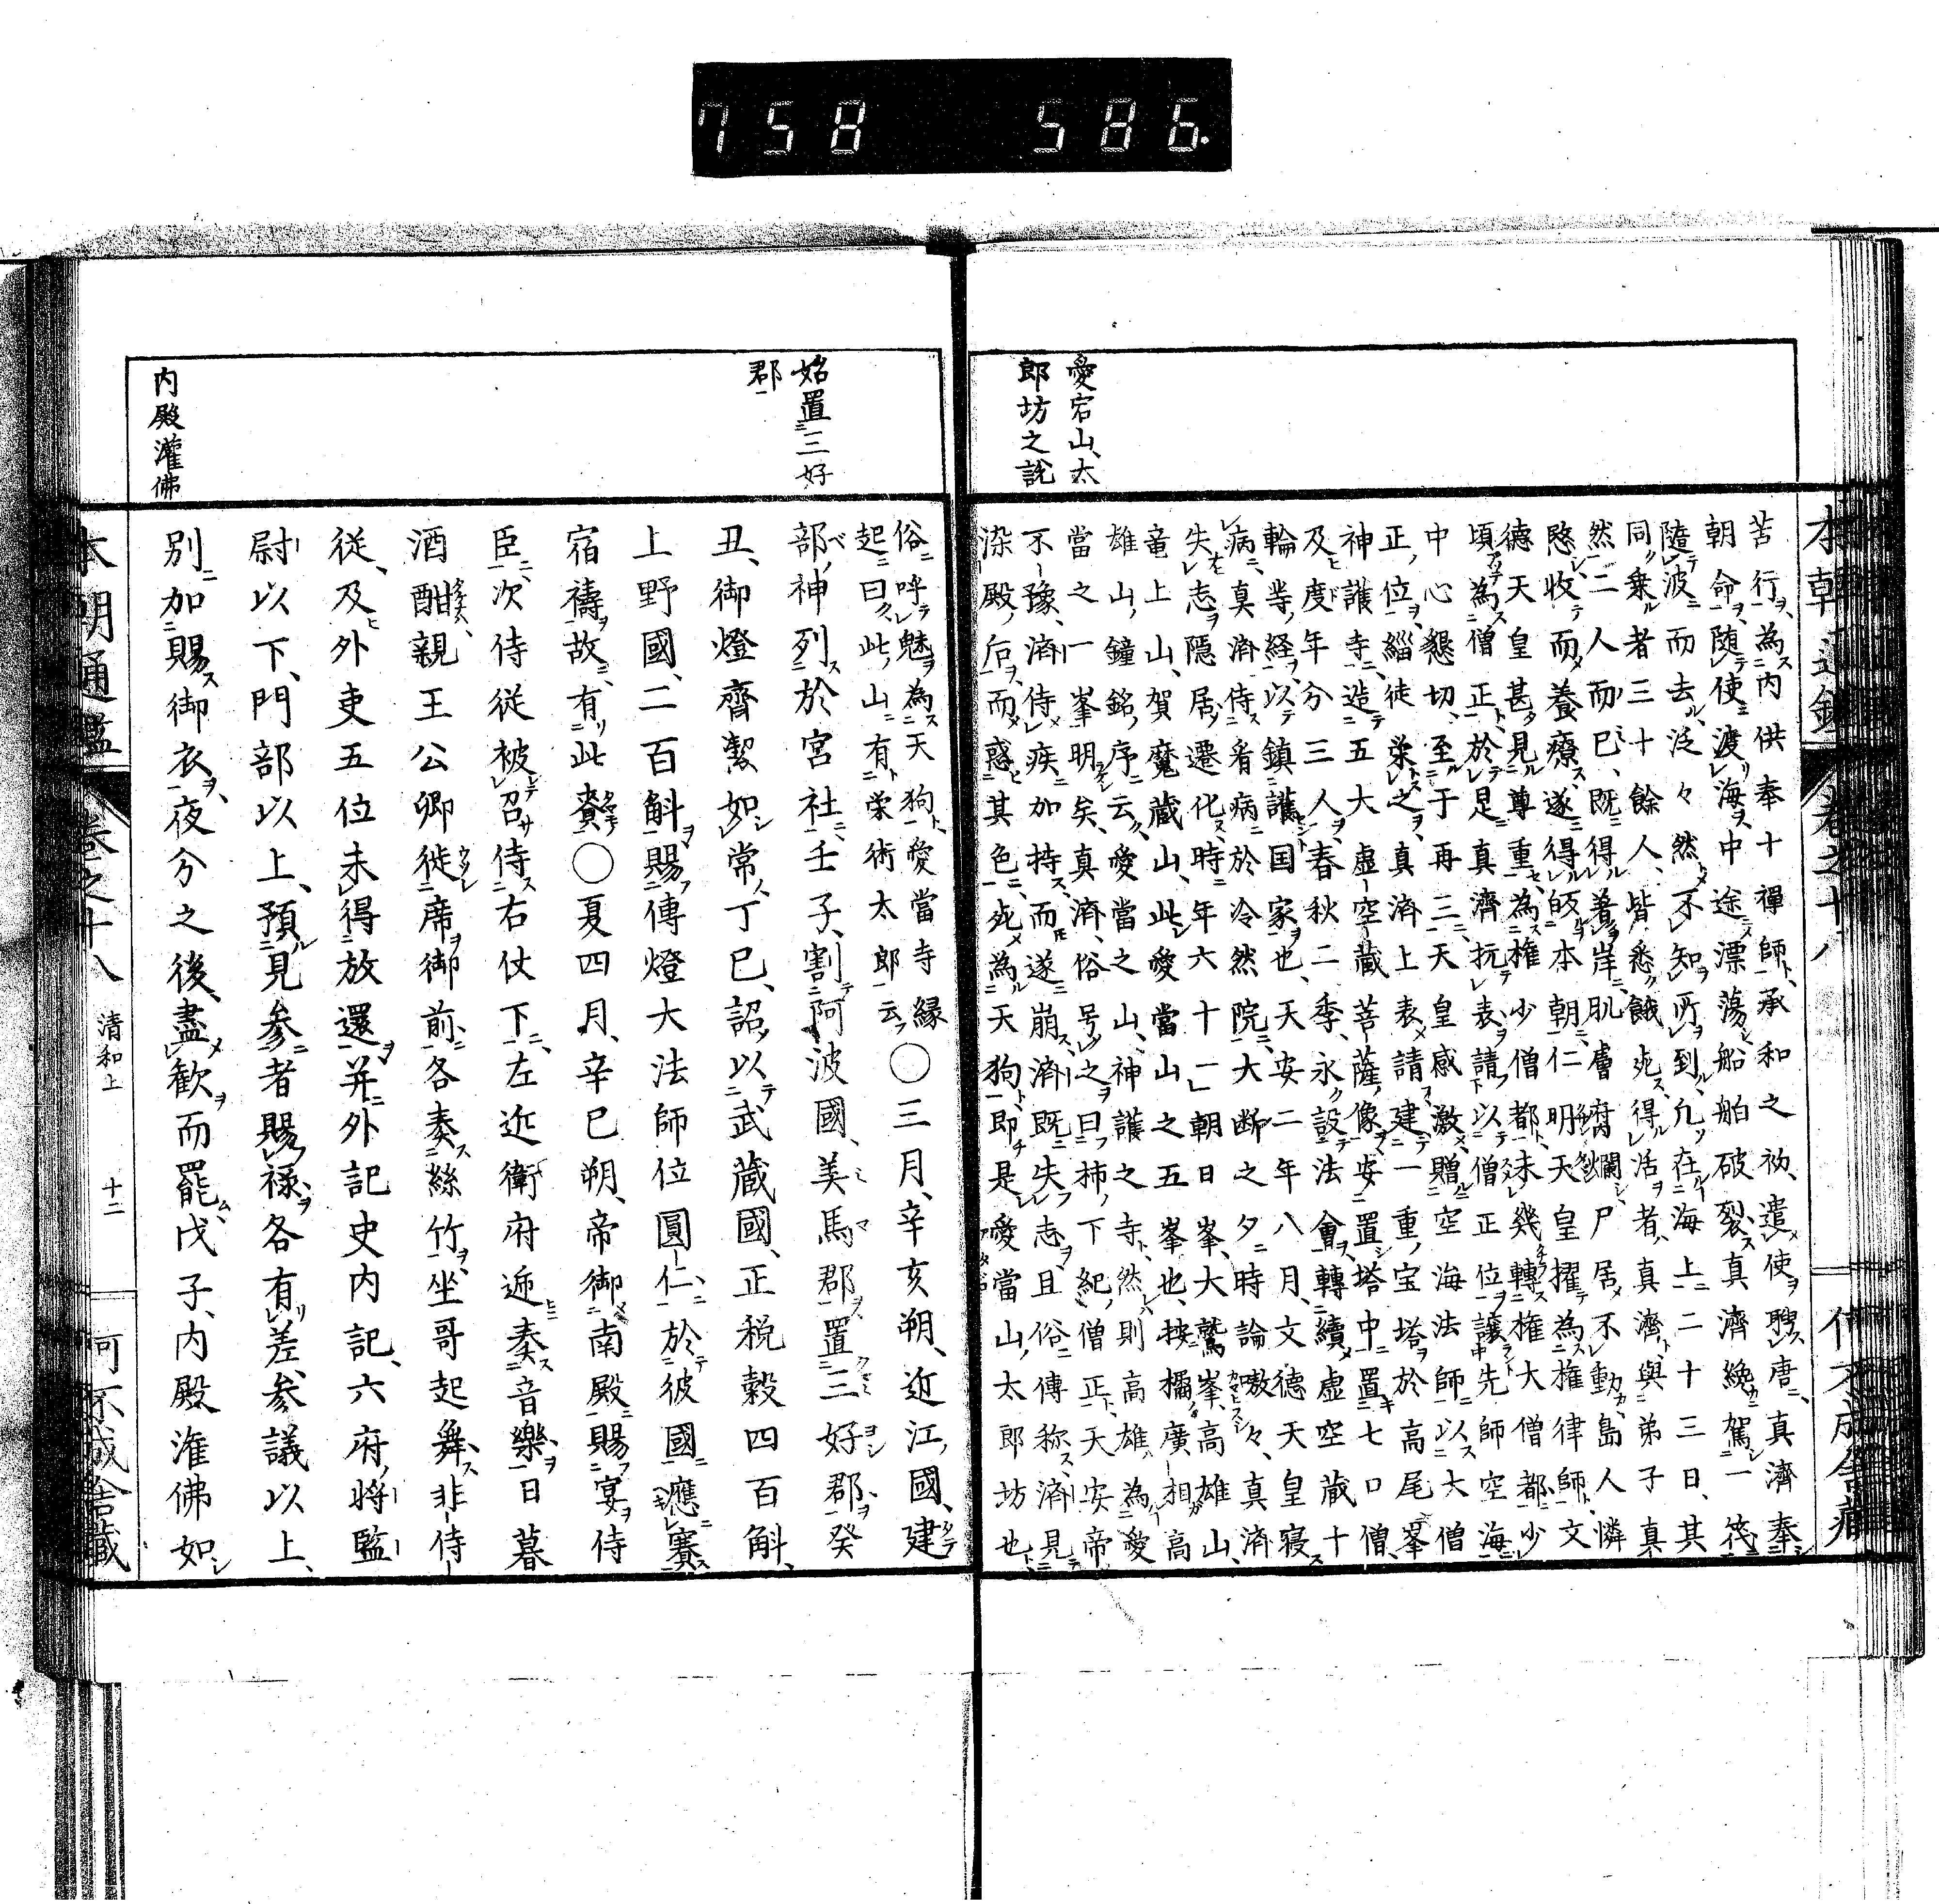 758 586.
愛宕山太
郎坊之説
苦行為内供奉十禪師承和之初遣使聘唐真濟奉
朝命随使渡海中途漂蕩船舶破裂真濟纔駕一筏
隨波而去泛々然不知所到凢在海上二十三日其
同乗者三十餘人皆悉餓死得活者真濟與弟子真
然二人而已既得著岸肌膚腐爛尸居不動島人憐
愍收而養療遂得皈本朝仁明天皇擢為権律師文
德天皇甚見尊重為権少僧都未幾轉権大僧都少
頃為僧正於是真濟抗表請以僧正位讓先師空海
中心懇切至于再三天皇感激贈空海法師以大僧
正位緇徒栄之真濟上表請建一重宝塔於高尾峯
神護寺造五大虚空蔵菩薩像安置塔中置七口僧
及度年分三人春秋二季永設法會轉續虚空蔵十
輪等経以鎮護国家也天安二年八月文德天皇寢
病真濟侍看病於冷然院大断之夕時論嗷々真濟
失志隱居遷化時年六十一朝日峯大鷲峯高雄山
竜上山賀魔蔵山此愛當山之五峯也按橘廣相高
雄山鐘銘序云愛當之山神護之寺然則高雄為愛
當之一峯明矣真濟俗号之曰柿下紀僧正天安帝
不豫濟侍疾加持而遂崩濟既失志且俗傳称濟見
染殿后而惑其色死為天狗即是愛當山太郎坊也
始置三好
郡
内殿灌佛
俗呼魅為天狗愛當寺縁
起曰此山有栄術太郎云
○三月辛亥朔近江國建
部神列於宮社壬子割阿波國美馬郡置三好郡癸
丑御燈齊潔如常丁巳詔以武蔵國正税穀四百斛
上野國二百斛賜傳燈大法師位圓仁於彼國應賽
宿禱故有此賚○夏四月辛巳朔帝御南殿賜宴侍
臣次侍従被召侍右仗下左近衛府逓奏音樂日暮
酒酣親王公卿徙席御前各奏絲竹坐哥起舞非侍
従及外吏五位未得放還并外記史内記六府將監
尉以下門部以上預見参者賜禄各有差参議以上
別加賜御衣夜分之後盡歓而罷戊子内殿潅佛如
本朝通鑑 卷之十八 清和上 十二 何不成舎藏